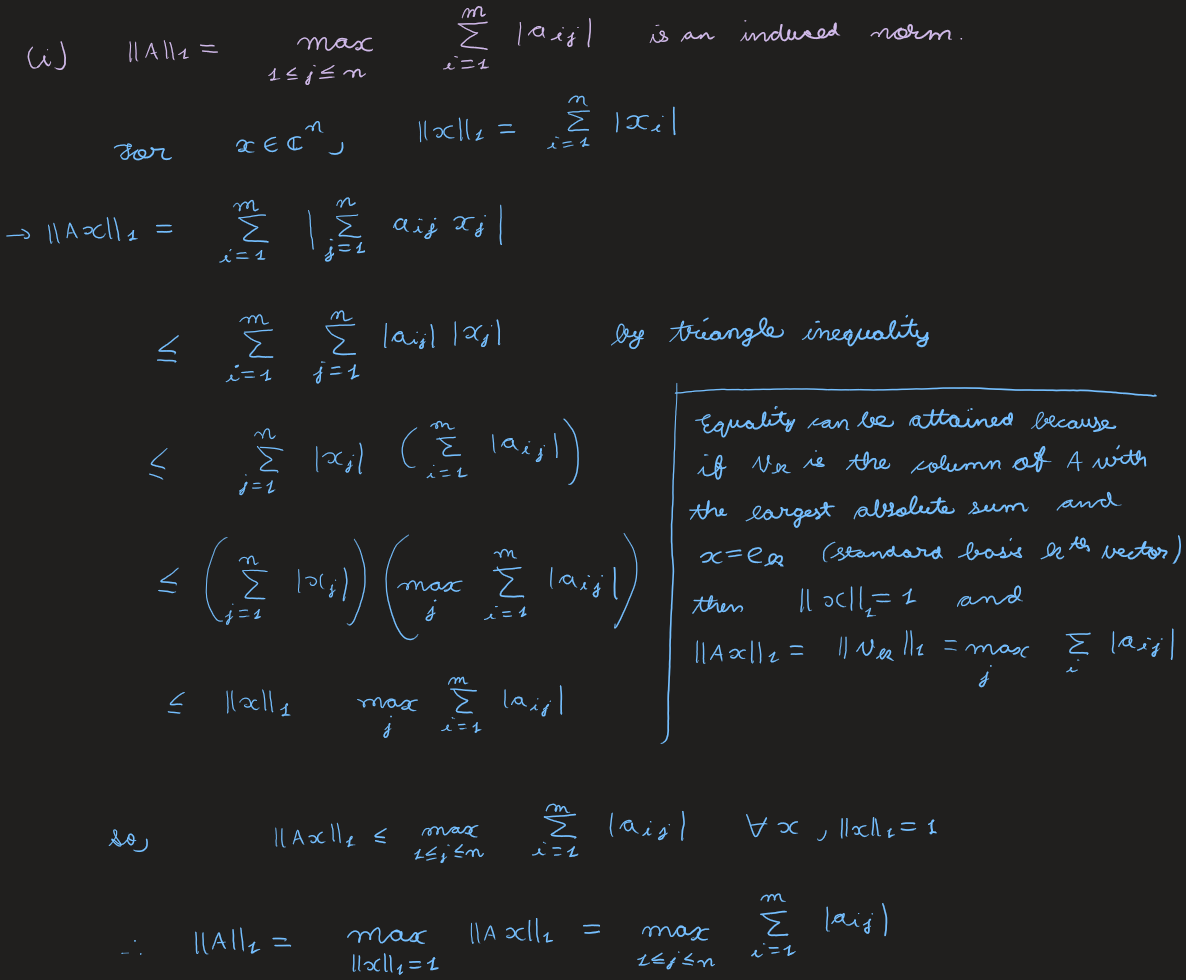 (i) ||A||₁ = max_{1≤j≤n} ∑_{i=1}^{m} |a_{ij}| is an induced norm.
for x ∈ ℂⁿ, ||x||₁ = ∑_{i=1}^{n} |x_i|
→ ||Ax||₁ = ∑_{i=1}^{m} | ∑_{j=1}^{n} a_{ij} x_j |
≤ ∑_{i=1}^{m} ∑_{j=1}^{n} |a_{ij}| |x_j| by triangle inequality
≤ ∑_{j=1}^{n} |x_j| ( ∑_{i=1}^{m} |a_{ij}| )
≤ ( ∑_{j=1}^{n} |x_j| ) ( max_j ∑_{i=1}^{m} |a_{ij}| )
≤ ||x||₁ max_j ∑_{i=1}^{m} |a_{ij}|
Equality can be attained because
if v_k is the column of A with
the largest absolute sum and
x = e_k (standard basis kth vector)
then ||x||₁ = 1 and
||Ax||₁ = ||v_k||₁ = max_j ∑_i |a_{ij}|
so, ||Ax||₁ ≤ max_{1≤j≤n} ∑_{i=1}^{m} |a_{ij}| ∀ x , ||x||₁ = 1
∴ ||A||₁ = max_{||x||₁=1} ||Ax||₁ = max_{1≤j≤n} ∑_{i=1}^{m} |a_{ij}|